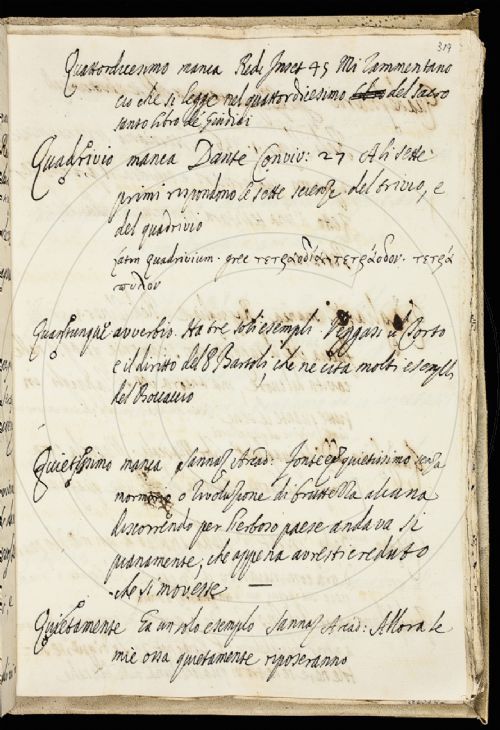 319
Quattordicesimo manca Redi Inset 45 Mi rammentano
ciò che si legge nel quattordicesimo del sacro
santo libro de Giudici
Quadrivio manca Dante Conviv: 27 Ali sette
primi rispondono le sette scienze del trivio, e
del quadrivio
quadrivium. grec τετράοδον. τετρά
πυλον
Quantunque avverbio. Ha tre soli esempli. Veggasi il Porto
e il diritto del P Bartoli che ne cita molti esempli
del Boccaccio
Quietissimo manca Sannaz Arcad: quietissimo senza
mormorio o rivoluzione di bruttezza alcuna
discorrendo per herboso paese andava sì
pianamente, che appena avresti creduto
che si movesse —
Quietamente Ha un solo esempio Sannaz Arcad: Allora le
mie ossa quietamente riposeranno